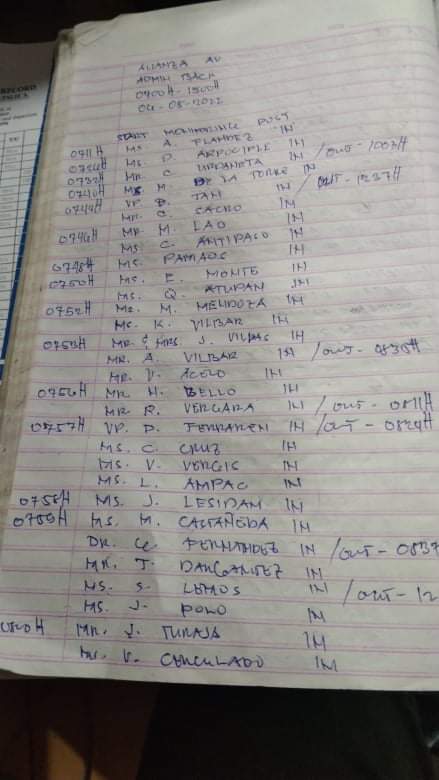 RECORD
ALIANZA AV
ADMIN BACK
0700H - 1500H
04-05-2022
START MONITORING POST
0711H MS. A. FLANDEZ IN
0724H MS. D. ARPOCIPLE IN
0732H MR. C. URDANETA IN / OUT - 1007H
0740H MS. M. DE LA TORRE IN
0744H VP. B. TAN IN / OUT - 1237H
MR. C. CACHO IN
0746H MR. M. LAO IN
MS. C. ANTIPASO IN
0748H MS. PAMAOS IN
0750H MS. E. MONTE IN
MS. Q. ATUPAN IN
0752H MS. M. MENDOZA IN
MS. K. VILBAR IN
0753H MR. & MRS. J. VILLAS IN
MR. A. VILBAR IN / OUT - 0835H
MR. V. ACELO IN
0756H MR. N. BELLO IN
MR. R. VERGARA IN / OUT - 0811H
0757H VP. D. FERRAREN IN / OUT - 0824H
MS. C. CRUZ IN
MS. V. VERGIS IN
MS. L. AMPAC IN
0758H MS. J. LESIDAN IN
0759H MS. M. CASTAÑEDA IN
DR. FERNANDEZ IN / OUT - 0837
MR. J. DANGANTEZ IN
MS. S. LEMOS IN / OUT - 12
MS. J. POLO IN
MR. J. TURAJA IN
MS. V. CANCULADO IN